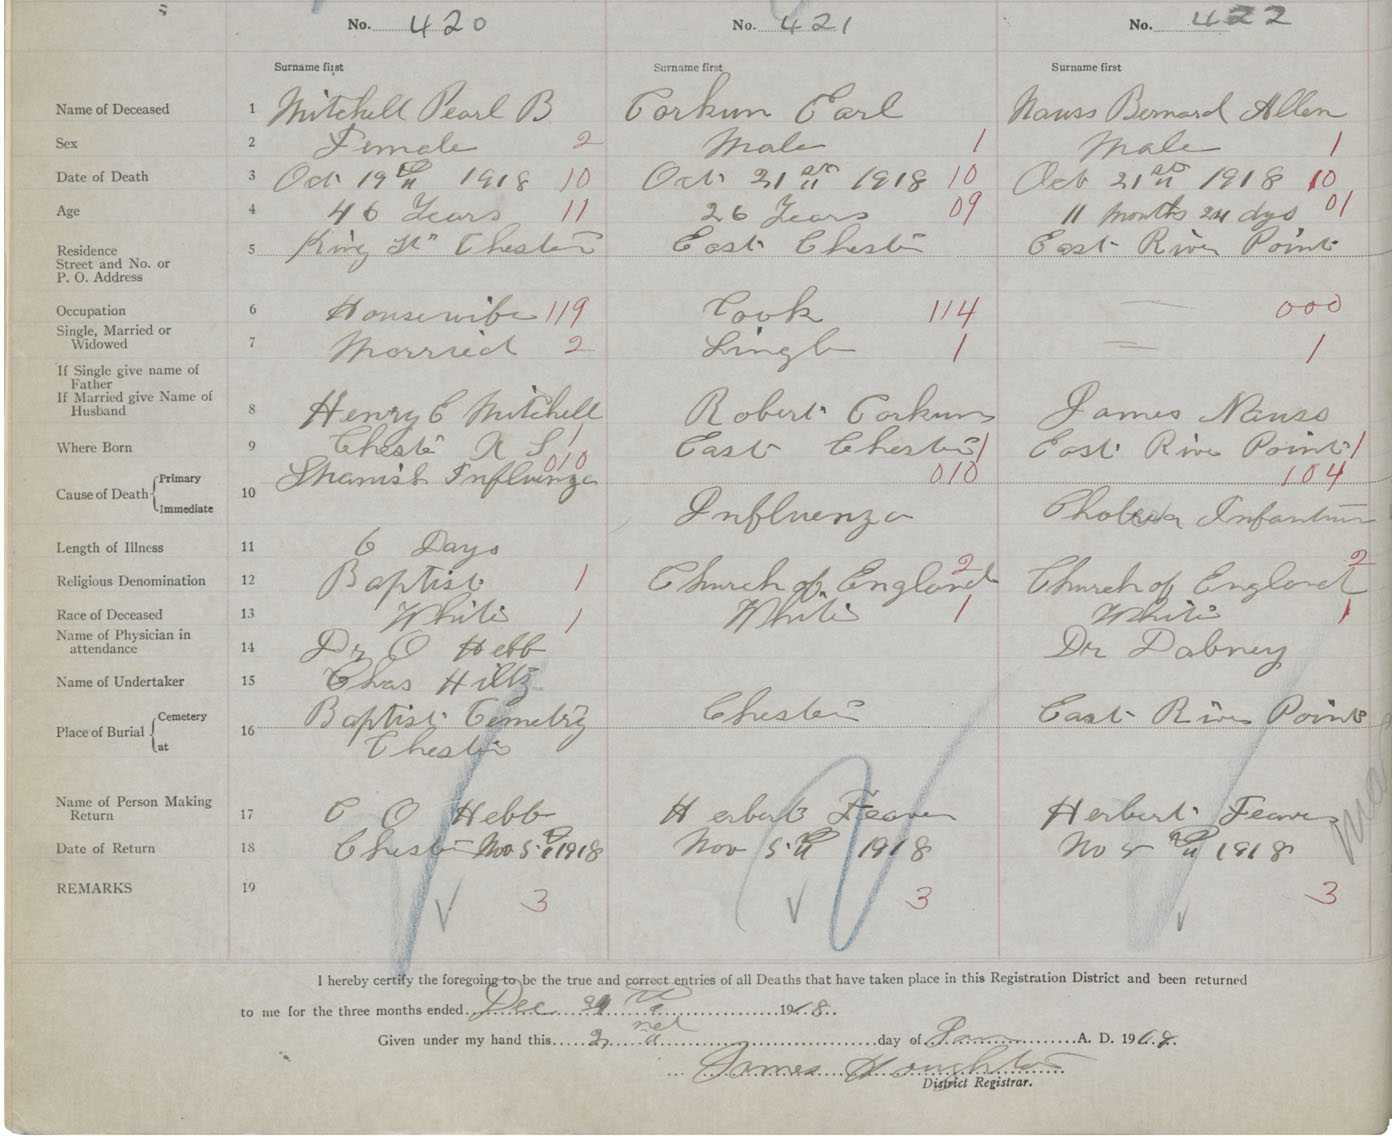 No. 420 No. 421 No. 422
Surname first Surname first Surname first
Name of Deceased 1 Mitchell Pearl B Corkum Earl Nauss Bernard Allen
Sex 2 Female 2 Male 1 Male 1
Date of Death 3 Oct 19th 1918 10 Oct 21 1918 10 Oct 21 1918 10
Age 4 46 Years 11 26 Years 09 11 months 24 dys 01
Residence
Street and No. or
P. O. Address
5 King St Chester East Chester East River Point
Occupation 6 Housewife 119 Cook 114 000
Single, Married or
Widowed 7 Married 2 Single 1 1
If Single give name of
Father
If Married give Name of
Husband 8 Henry C Mitchell Robert Corkum James Nauss
Where Born 9 Chester N S 1 East Chester 1 East River Point 1
010 010 104
Cause of Death Primary Spanish Influenza
Immediate 10 Influenza Cholera Infantum
Length of Illness 11 6 Days
Religious Denomination 12 Baptist 1 Church of England 2 Church of England 2
Race of Deceased 13 White 1 White 1 White 1
Name of Physician in
attendance 14 Dr O Hebb Dr Dabney
Name of Undertaker 15 Chas Hiltz
Place of Burial Cemetery at 16 Baptist Cemetry Chester East River Point
Chester
Name of Person Making
Return 17 C O Hebb Herbert Feaver Herbert Feaver
Date of Return 18 Chester Nov 5th 1918 Nov 5th 1918 Nov 5th 1918
REMARKS 19 3 3 3
I hereby certify the foregoing to be the true and correct entries of all Deaths that have taken place in this Registration District and been returned
to me for the three months ended Dec 1918.
Given under my hand this 2nd day of Jan A. D. 19
James Houghton
District Registrar.